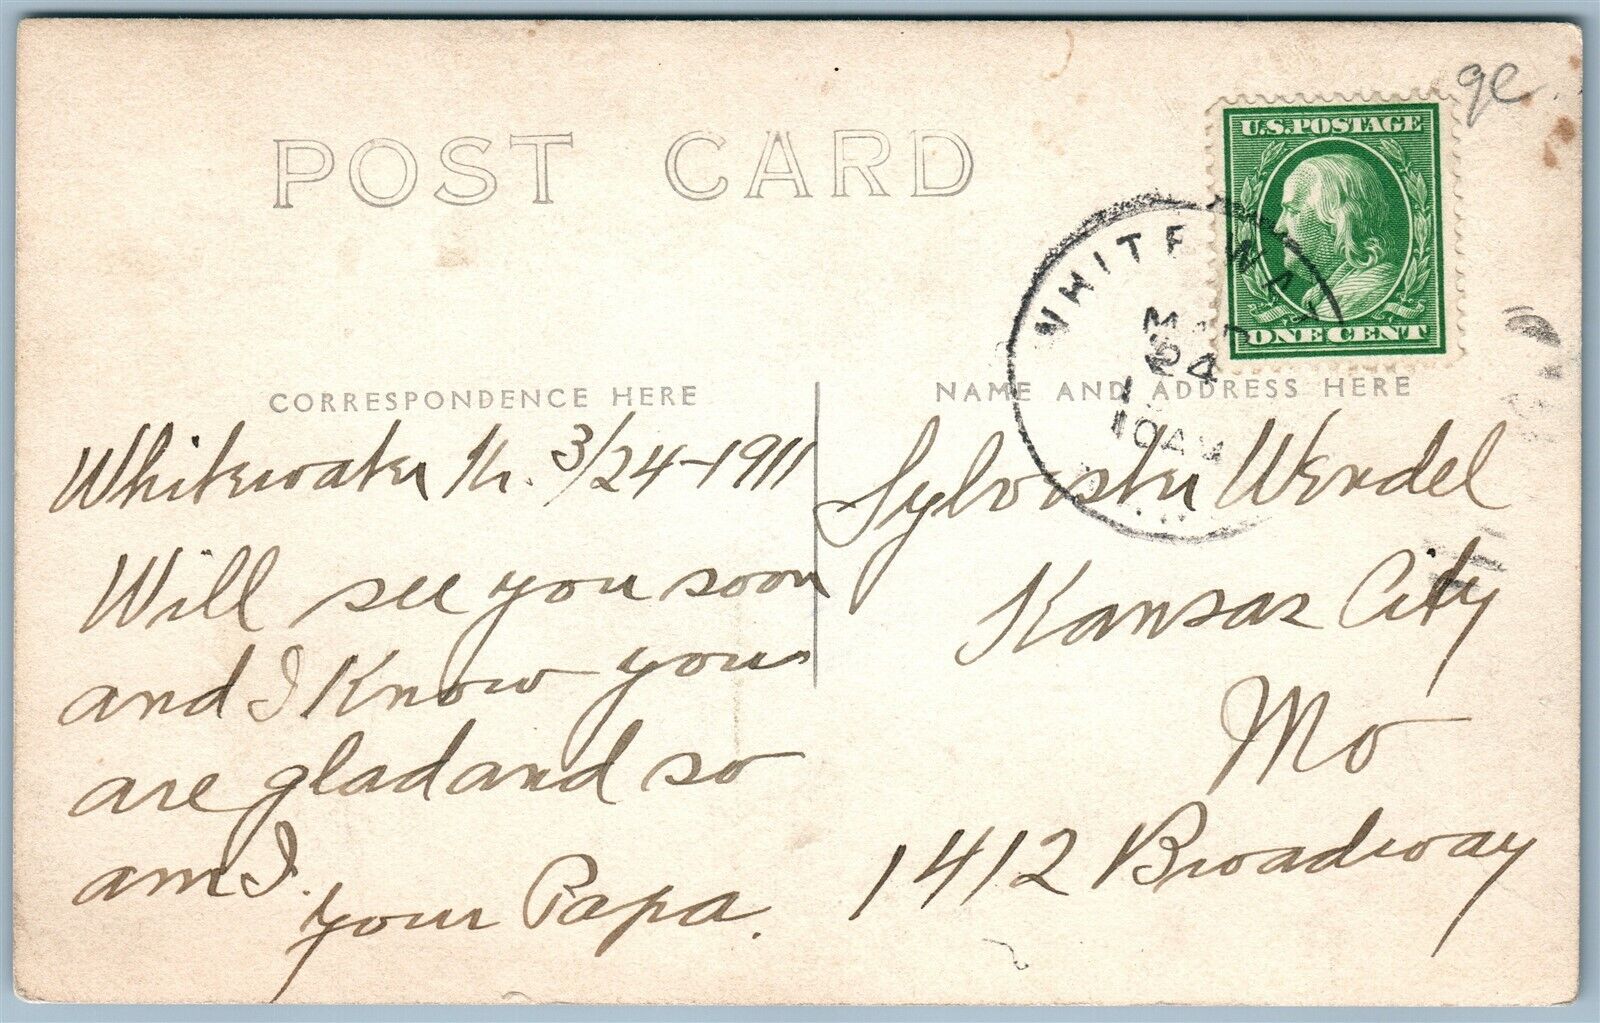 POST CARD
U.S. POSTAGE
ONE CENT
WHITEWAT
MAR
24
10 AM
CORRESPONDENCE HERE
NAME AND ADDRESS HERE
Whitewater Ks. 3/24-1911
Will see you soon
and I Know you
are glad and so
am I.
your Papa.
Sylvester Wendel
Kansas City
Mo
1412 Broadway